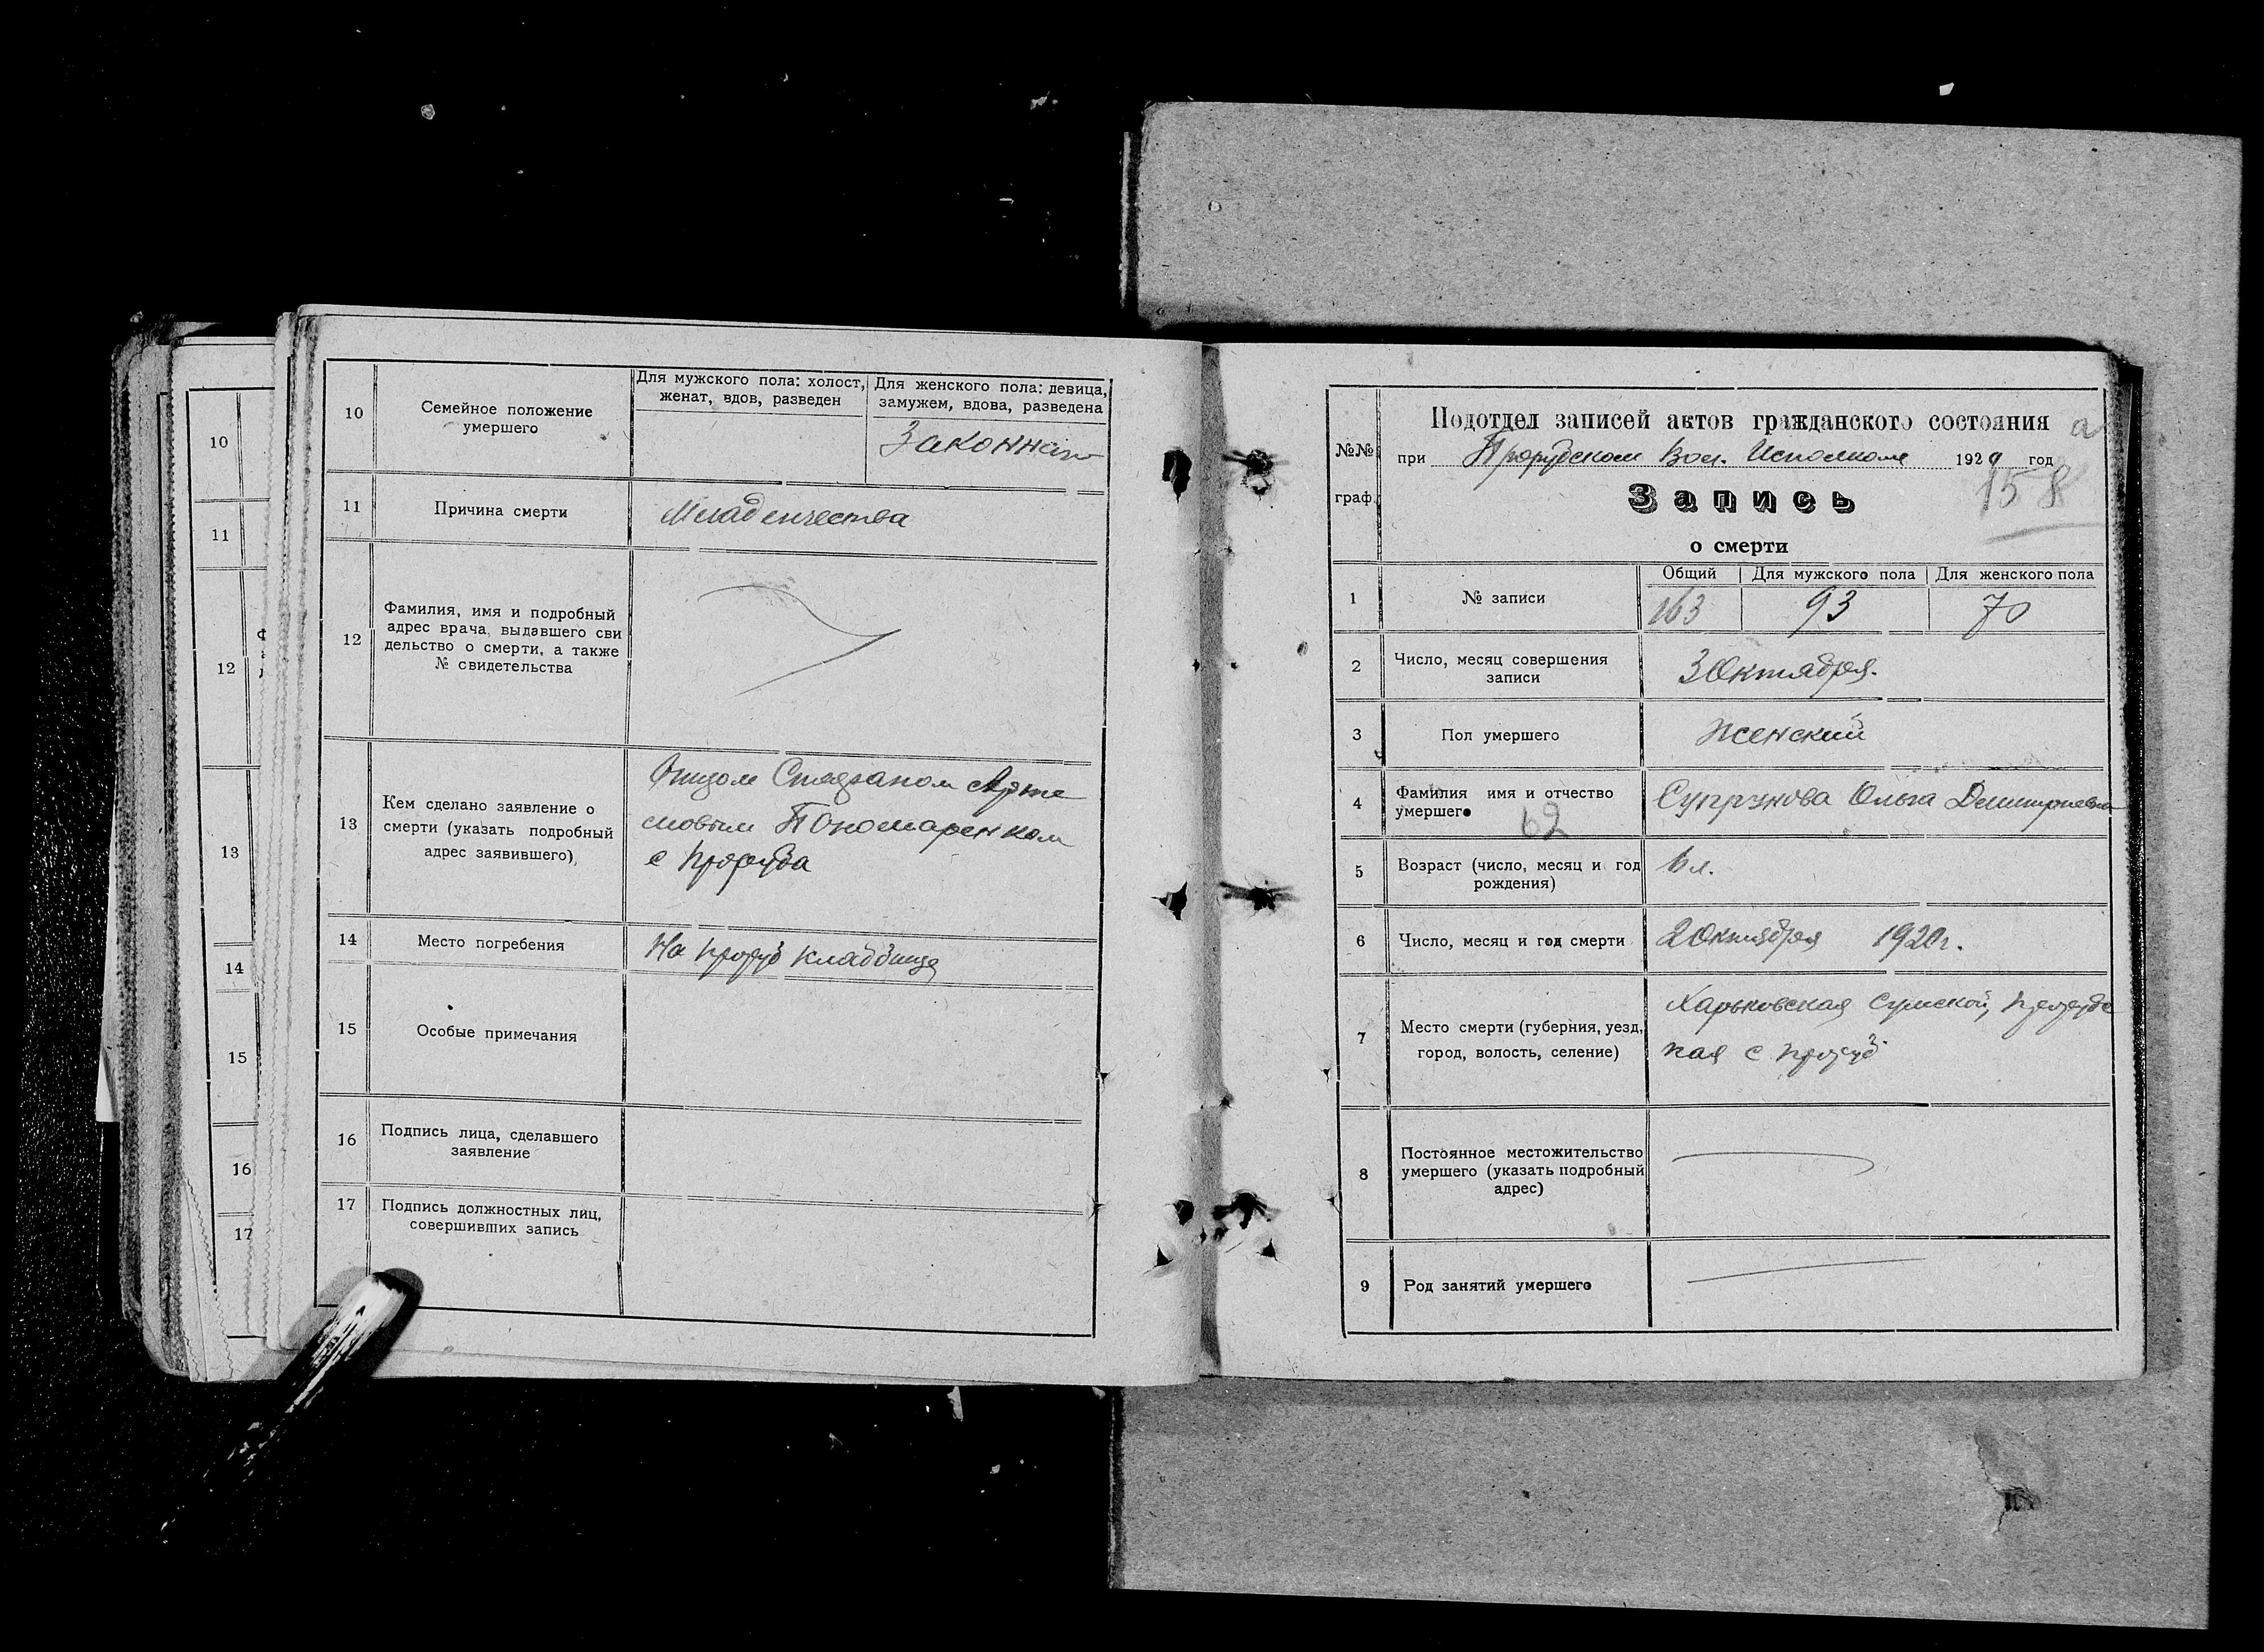 10
11
12
13
14
15
16
17
10
Семейное положение
умершего
Для мужского пола: холост,
женат, вдов, разведен
Для женского пола: девица,
замужем, вдова, разведена
11
Причина смерти
Младенчества
12
Фамилия, имя и подробный
адрес врача, выдавшего сви
дельство о смерти, а также
№ свидетельства
13
Кем сделано заявление о
смерти (указать подробный
адрес заявившего)
Отцом Стефаном Арте
мовым Пономаренком
с Проруба
14
Место погребения
На Проруб кладбище
15
Особые примечания
16
Подпись лица, сделавшего
заявление
17
Подпись должностных лиц,
совершивших запись
№№
граф.
Подотдел записей актов гражданского состояния
при Прорубском Вол. Исполкоме 1920 год
158
Запись
о смерти
1
№ записи
Общий
Для мужского пола
Для женского пола
163
93
70
2
Число, месяц совершения
записи
3 Октября.
3
Пол умершего
Женский
4
Фамилия имя и отчество
умершего
62
Супрунова Ольга Димитриевна
5
Возраст (число, месяц и год
рождения)
6
Число, месяц и год смерти
2 Октября 1920 г.
7
Место смерти (губерния, уезд,
город, волость, селение)
Харьковская Сумской, Прорубс
кая с Проруб
8
Постоянное местожительство
умершего (указать подробный
адрес)
9
Род занятий умершего